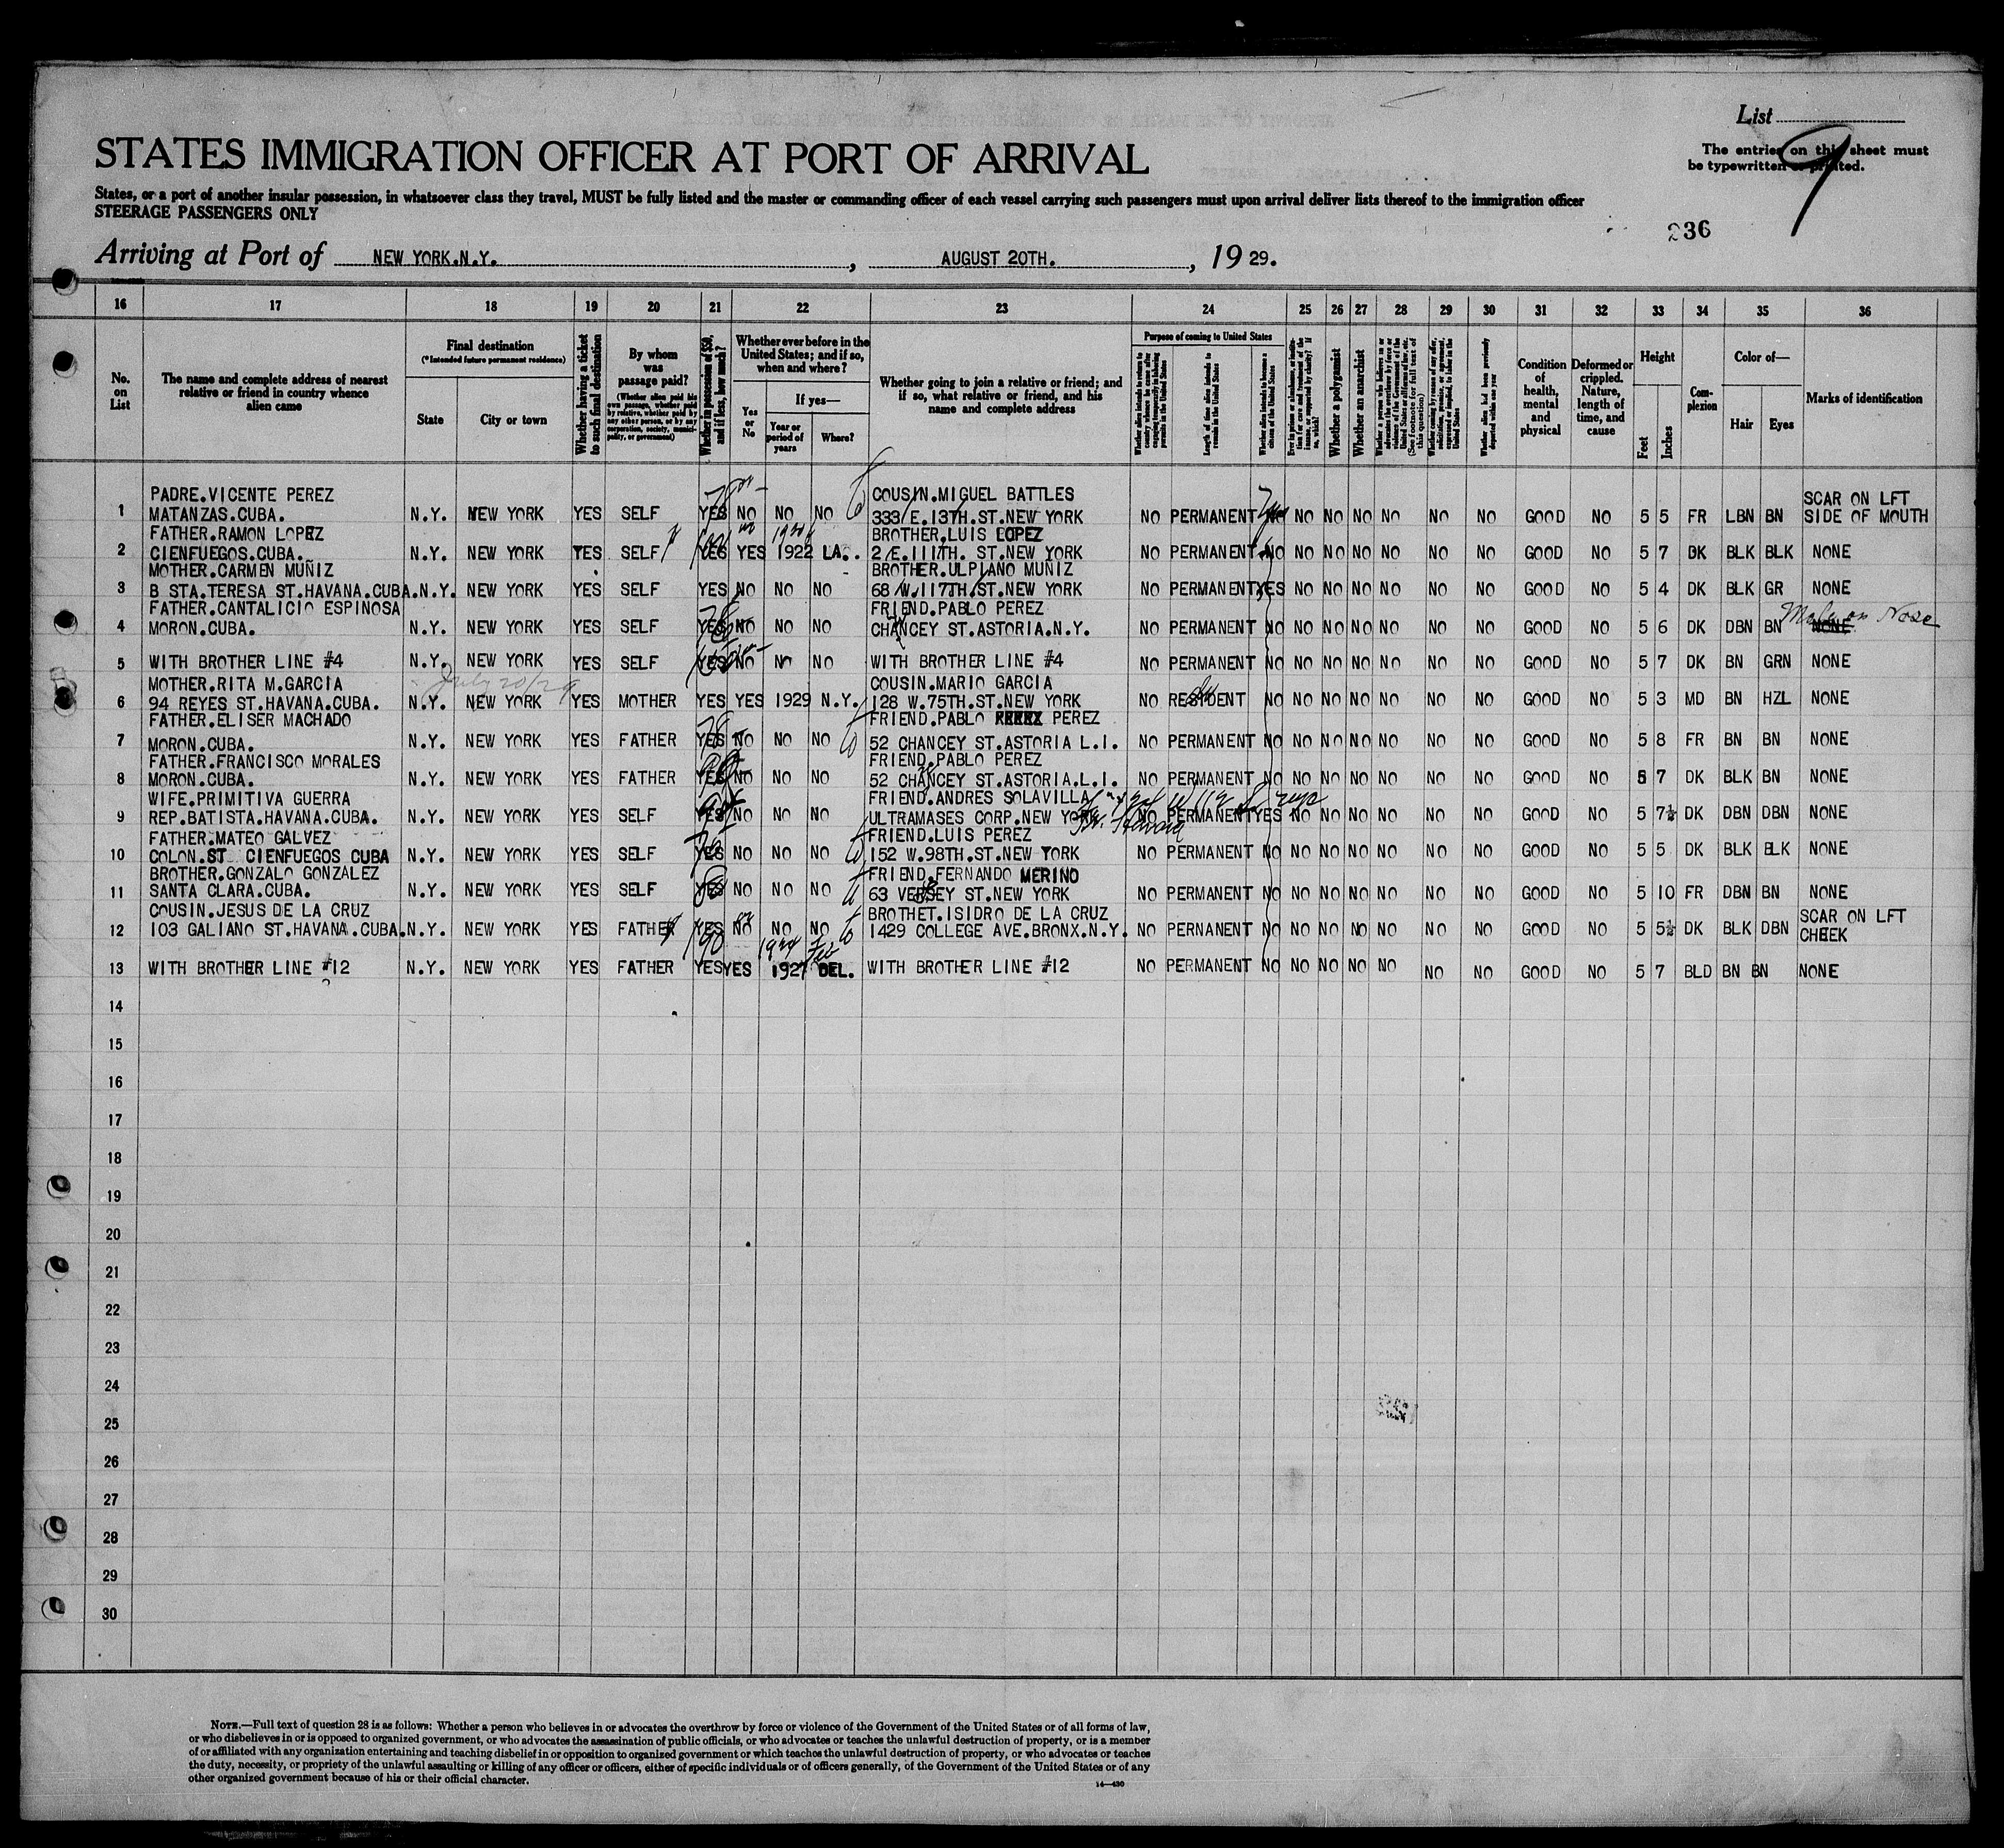 List
9
The entries on this sheet must
be typewritten or printed.
STATES IMMIGRATION OFFICER AT PORT OF ARRIVAL
States, or a port of another insular possession, in whatsoever class they travel, MUST be fully listed and the master or commanding officer of each vessel carrying such passengers must upon arrival deliver lists thereof to the immigration officer
STEERAGE PASSENGERS ONLY
236
Arriving at Port of NEW YORK.N.Y. , AUGUST 20TH. , 19 29.
16 17 18 19 20 21 22 23 24 25 26 27 28 29 30 31 32 33 34 35 36
No. on List
The name and complete address of nearest relative or friend in country whence alien came
Final destination
(*Intended future permanent residence)
State
City or town
Whether having a ticket to such final destination
By whom was passage paid?
(Whether alien paid his own passage, whether paid by relative, whether paid by any other person, or by any corporation, society, municipality, or government)
Whether in possession of $50, and if less, how much?
Whether ever before in the United States; and if so, when and where?
Yes or No
If yes—
Year or period of years
Where?
Whether going to join a relative or friend; and if so, what relative or friend, and his name and complete address
Purpose of coming to United States
Length of time alien intends to remain in the United States
Whether alien intends to become a citizen of the United States
Whether a polygamist
Whether an anarchist
Whether alien had been previously deported within one year
Condition of health, mental and physical
Deformed or crippled. Nature, length of time, and cause
Height
Feet
Inches
Complexion
Color of—
Hair
Eyes
Marks of identification
PADRE.VICENTE PEREZ COUSIN.MIGUEL BATTLES SCAR ON LFT
1 MATANZAS.CUBA. N.Y. NEW YORK YES SELF YES NO NO NO 333 E.13TH.ST.NEW YORK NO PERMANENT NO NO NO NO NO NO GOOD NO 5 5 FR LBN BN SIDE OF MOUTH
FATHER.RAMON LOPEZ BROTHER.LUIS LOPEZ
2 CIENFUEGOS.CUBA. N.Y. NEW YORK YES SELF YES YES 1922 LA.. 2 E.111TH. ST.NEW YORK NO PERMANENT NO NO NO NO NO NO NO GOOD NO 5 7 DK BLK BLK NONE
MOTHER.CARMEN MUÑIZ BROTHER.ULPIANO MUÑIZ
3 B STA.TERESA ST.HAVANA.CUBA.N.Y. NEW YORK YES SELF YES NO NO NO 68 W.117TH.ST.NEW YORK NO PERMANENT YES NO NO NO NO NO NO GOOD NO 5 4 DK BLK GR NONE
FATHER.CANTALICIO ESPINOSA FRIEND.PABLO PEREZ Mole on Nose
4 MORON.CUBA. N.Y. NEW YORK YES SELF YES NO NO NO CHANCEY ST.ASTORIA.N.Y. NO PERMANENT NO NO NO NO NO NO NO GOOD NO 5 6 DK DBN BN NONE
5 WITH BROTHER LINE #4 N.Y. NEW YORK YES SELF YES NO NO NO WITH BROTHER LINE #4 NO PERMANENT NO NO NO NO NO NO NO GOOD NO 5 7 DK BN GRN NONE
MOTHER.RITA M.GARCIA July 20/29 COUSIN.MARIO GARCIA
6 94 REYES ST.HAVANA.CUBA. N.Y. NEW YORK YES MOTHER YES YES 1929 N.Y. 128 W.75TH.ST.NEW YORK NO RESIDENT NO NO NO NO NO NO NO GOOD NO 5 3 MD BN HZL NONE
FATHER.ELISER MACHADO FRIEND.PABLO PEREZ
7 MORON.CUBA. N.Y. NEW YORK YES FATHER YES NO NO NO 52 CHANCEY ST.ASTORIA L.I. NO PERMANENT NO NO NO NO NO NO NO GOOD NO 5 8 FR BN BN NONE
FATHER.FRANCISCO MORALES FRIEND.PABLO PEREZ
8 MORON.CUBA. N.Y. NEW YORK YES FATHER YES NO NO NO 52 CHANCEY ST.ASTORIA.L.I. NO PERMANENT NO NO NO NO NO NO NO GOOD NO 5 7 DK BLK BN NONE
WIFE.PRIMITIVA GUERRA FRIEND.ANDRES SOLAVILLA
9 REP.BATISTA.HAVANA.CUBA. N.Y. NEW YORK YES SELF YES NO NO NO ULTRAMASES CORP.NEW YORK NO PERMANENT YES NO NO NO NO NO NO GOOD NO 5 7½ DK DBN DBN NONE
FATHER.MATEO GALVEZ FRIEND.LUIS PEREZ
10 COLON.ST CIENFUEGOS CUBA N.Y. NEW YORK YES SELF YES NO NO NO 152 W.98TH.ST.NEW YORK NO PERMANENT NO NO NO NO NO NO NO GOOD NO 5 5 DK BLK BLK NONE
BROTHER.GONZALO GONZALEZ FRIEND.FERNANDO MERINO
11 SANTA CLARA.CUBA. N.Y. NEW YORK YES SELF YES NO NO NO 63 VESEY ST.NEW YORK NO PERMANENT NO NO NO NO NO NO NO GOOD NO 5 10 FR DBN BN NONE
COUSIN.JESUS DE LA CRUZ BROTHET.ISIDRO DE LA CRUZ SCAR ON LFT
12 103 GALIANO ST.HAVANA.CUBA.N.Y. NEW YORK YES FATHER YES NO NO NO 1429 COLLEGE AVE.BRONX.N.Y. NO PERNANENT NO NO NO NO NO NO NO GOOD NO 5 5½ DK BLK DBN CHEEK
13 WITH BROTHER LINE #12 N.Y. NEW YORK YES FATHER YES YES 1927 DEL. WITH BROTHER LINE #12 NO PERMANENT NO NO NO NO NO NO NO GOOD NO 5 7 BLD BN BN NONE
14
15
16
17
18
19
20
21
22
23
24
25
26
27
28
29
30
NOTE.—Full text of question 28 is as follows: Whether a person who believes in or advocates the overthrow by force or violence of the Government of the United States or of all forms of law,
or who disbelieves in or is opposed to organized government, or who advocates the assassination of public officials, or who advocates or teaches the unlawful destruction of property, or is a member
of or affiliated with any organization entertaining and teaching disbelief in or opposition to organized government or which teaches the unlawful destruction of property, or who advocates or teaches
the duty, necessity, or propriety of the unlawful assaulting or killing of any officer or officers, either of specific individuals or of officers generally, of the Government of the United States or of any
other organized government because of his or their official character.
14—430